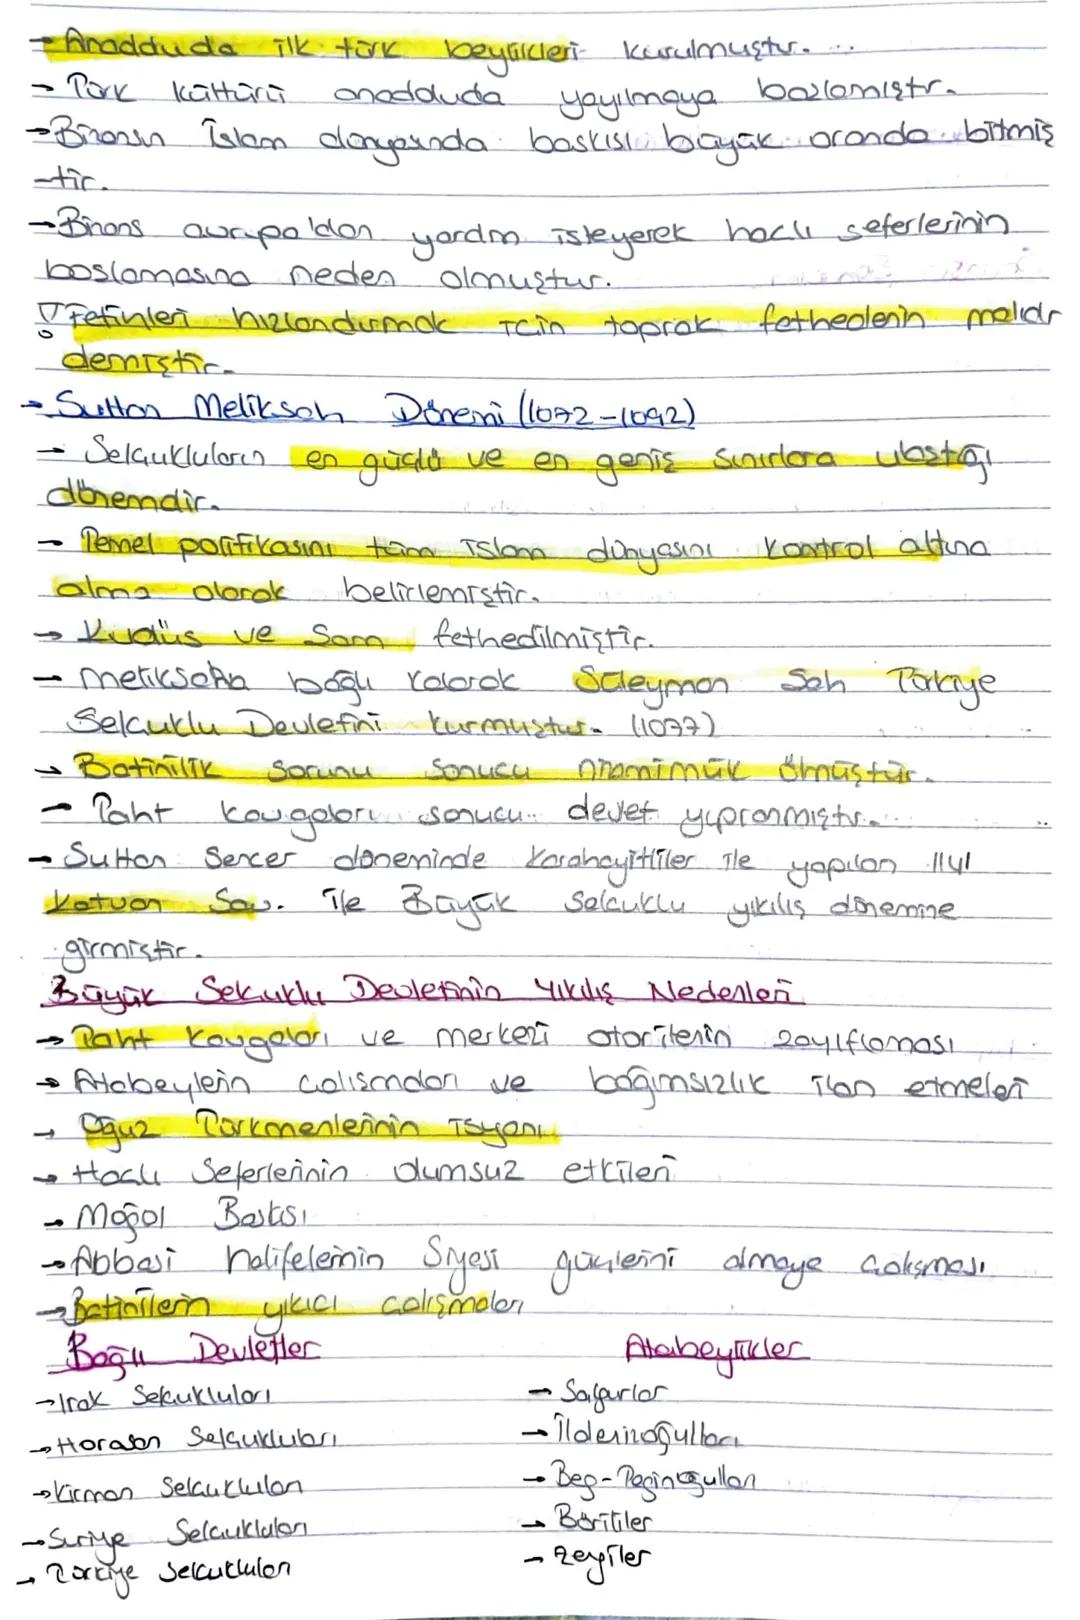 → Anadoluda ilk türk beylikleri kurulmuştur. ..
→ Türk kültürü anadoluda yayılmaya başlamıştr.
→ Bizansın İslam dünyasında baskısı büyük oranda bitmiş
-tir.
→ Bizans avrupa'dan yardım isteyerek haclı seferlerinin
baslamasına neden olmuştur.
! Fetihleri hızlandırmak icin toprak fethedenin malıdr
demiştir.
→ Sultan Meliksah Dönemi (1072-1092)
→ Selcukluların en güçlü ve en geniş sınırlara ulastığı
dönemdir.
→ Temel politikasını tüm islam dünyasını kontrol altına
alma olarak belirlemiştir.
→ Kudüs ve Sam fethedilmiştir.
→ Meliksaha bağlı kalarak Süleyman Sah Türkiye
Selcuklu Devletini kurmuştur. (1077)
→ Batinilik sorunu sonucu nizamimülk ölmüştür.
→ Taht kavgaları sonucu devlet yıpranmıştır.
→ Sultan Sencer döneminde Karahayitliler ile yapılan 1141
Katvan Sav. ile Büyük Selcuklu yıkılış dönemine
girmiştir.
Büyük Selcuklu Devletinin Yıkılış Nedenleri
→ Taht kavgaları ve merkezi otoritenin zayıflaması
→ Atabeylerin calısmaları ve bağımsızlık ilan etmeleri
→ Oğuz Türkmenlerinin isyanı
→ Haclı Seferlerinin olumsuz etkileri
→ Moğol Baskısı
→ Abbasi halifelerinin Siyasi güçlerini almaya calısması
→ Batinilerin yıkıcı calışmaları
Bağlı Devletler
→ Irak Selcukluları
→ Horasan Selçukluları
→ Kirman Selcukluları
→ Suriye Selcukluları
→ Türkiye Selcukluları
Atabeylikler
→ Salgurlar
→ İldenizoğulları
→ Beg-Teginoğulları
→ Böritiler
→ Zengiler